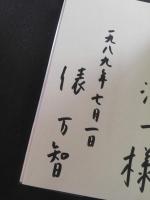 様
一九八九年七月一日
俵万智